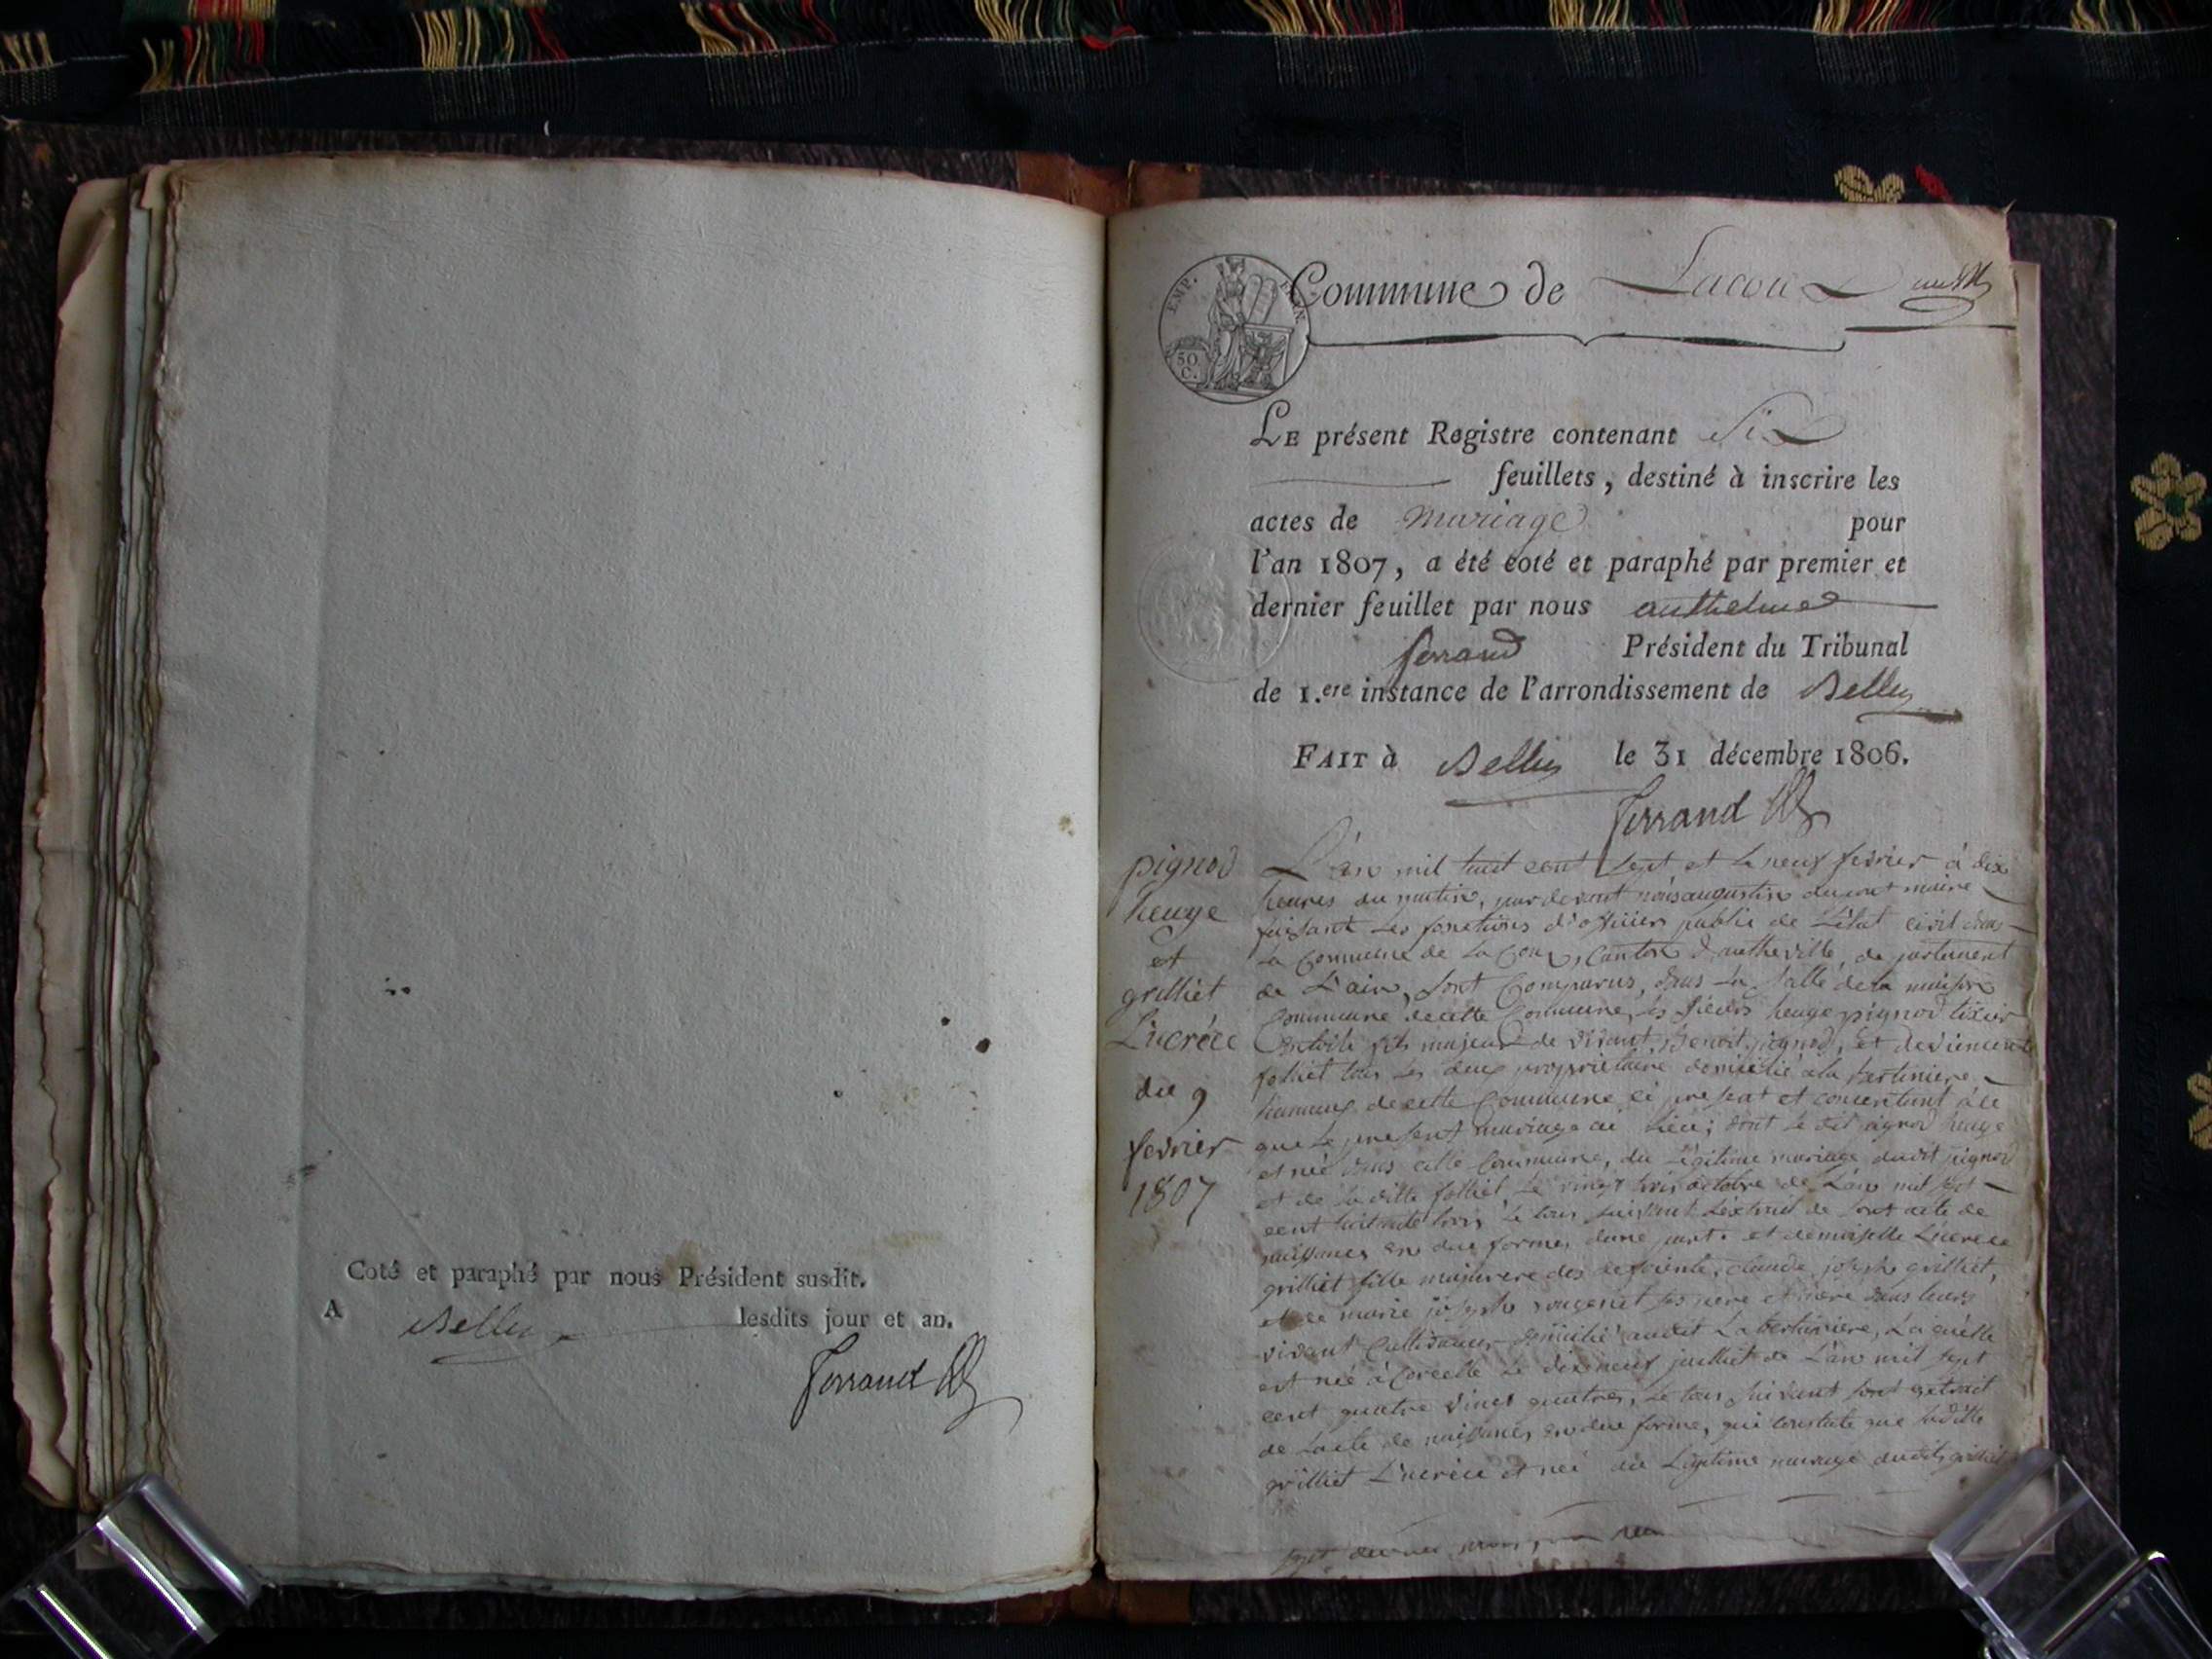 Coté et paraphé par nous Président susdit.
A Belley lesdits jour et an.
Ferrand
EMP. FRAN
50
C.
Commune de Lacoux
LE présent Registre contenant Six
feuillets, destiné à inscrire les
actes de mariage pour
l'an 1807, a été coté et paraphé par premier et
dernier feuillet par nous anthelme
ferrand Président du Tribunal
de 1.ere instance de l'arrondissement de Belley
FAIT à Belley le 31 décembre 1806.
Ferrand
pignod
heuge
et
grilliet
Lucréce
du 9
fevrier
1807
L'an mil huit cent sept et le neuf fevrier à dix
heures du matin, pardevant nous augustin ducret maire
faisant les fonctions d'officier public de L'état civil dans
la Commune de La Coux, Canton d'hautheville, departement
de L'ain, sont Comparus, dans La salle de la maison
Commune de cette Commune, les sieurs heuge pignod tixier
en toile fils majeur de vivant Benoit pignod, et de
folliet tous les deux propriétaire domicilié à la bertiniere
hameaux de cette Commune ci present et consentant à ce
que Le present mariage ai Lieu; dont le dit pignod heuge
et née dans cette Commune, du Légitime mariage dudit pignod
et de la ditte folliet, Le vingt trois octobre de L'an mil sept
cent huitante trois Le tous suivant L'extrait de son acte de
naissances en due forme, d'une part. et demoiselle Lucrece
grilliet fille majeure des claude joseph grilliet,
et de marie joseph rougemet ses pere et mere dans leurs
vivant Cultivateur domicilié audit La bertiniere, La quelle
est née à Corcelle Le dixneuf juilliet de L'an mil sept
cent quatre vingt quatres, Le tous suivant son extrait
de L'acte de naissances en due forme, qui constate que laditte
grilliet Lucréce et née du Légitime mariage dudit grilliet